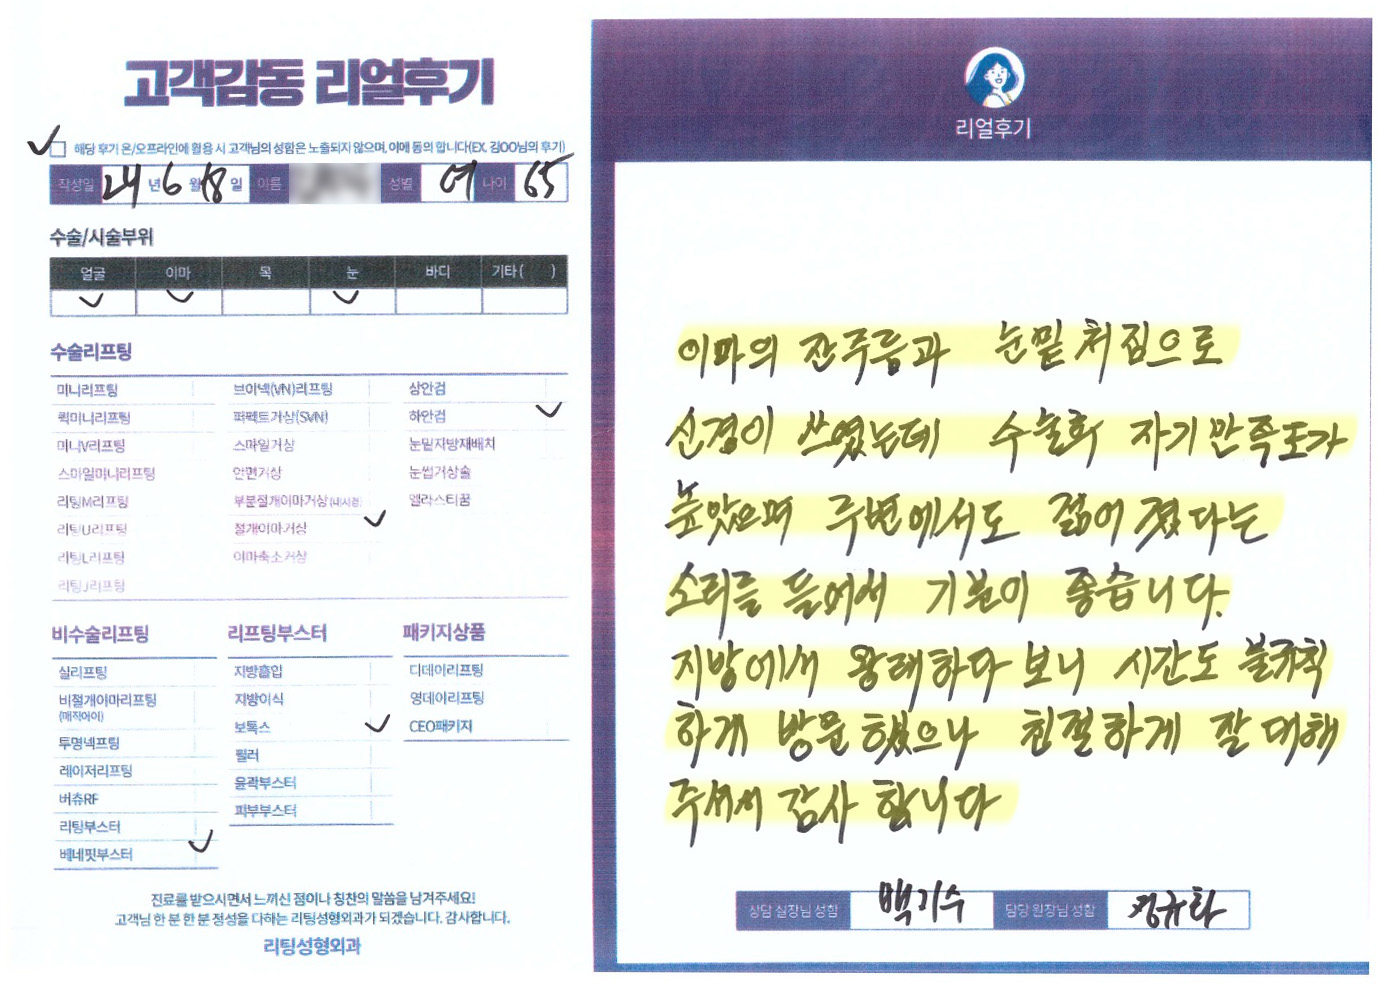 고객감동 리얼후기
해당 후기 온/오프라인에 활용 시 고객님의 성함은 노출되지 않으며, 이에 동의 합니다(EX. 김OO님의 후기)
작성일 24년 6월 18일 이름 성별 여 나이 65
수술/시술부위
얼굴 이마 목 눈 바디 기타 ( )
수술리프팅
미니리프팅 브이넥(VN)리프팅 상안검
퀵미니리프팅 퍼펙트거상(SVN) 하안검
미니V리프팅 스마일거상 눈밑지방재배치
스마일미니리프팅 안면거상 눈썹거상술
리팅M리프팅 부분절개이마거상(내시경) 엘라스티꿈
리팅U리프팅 절개이마거상
리팅L리프팅 이마축소거상
리팅J리프팅
비수술리프팅 리프팅부스터 패키지상품
실리프팅 지방흡입 디데이리프팅
비절개이마리프팅 지방이식 영데이리프팅
(매직아이)
투명넥프팅 보톡스 CEO패키지
레이저리프팅 필러
버츄RF 윤곽부스터
리팅부스터 피부부스터
베네핏부스터
진료를 받으시면서 느끼신 점이나 칭찬의 말씀을 남겨주세요!
고객님 한 분 한 분 정성을 다하는 리팅성형외과가 되겠습니다. 감사합니다.
리팅성형외과
리얼후기
이마의 잔주름과 눈밑 처짐으로
신경이 쓰였는데 수술후 자기만족도가
높았으며 주변에서도 젊어 졌다는
소리를 들어서 기분이 좋습니다.
지방에서 왕래하다 보니 시간도 불규칙
하게 방문했으나 친절하게 잘 대해
주셔서 감사 합니다
상담 실장님 성함 백기수 담당 원장님 성함 정규화